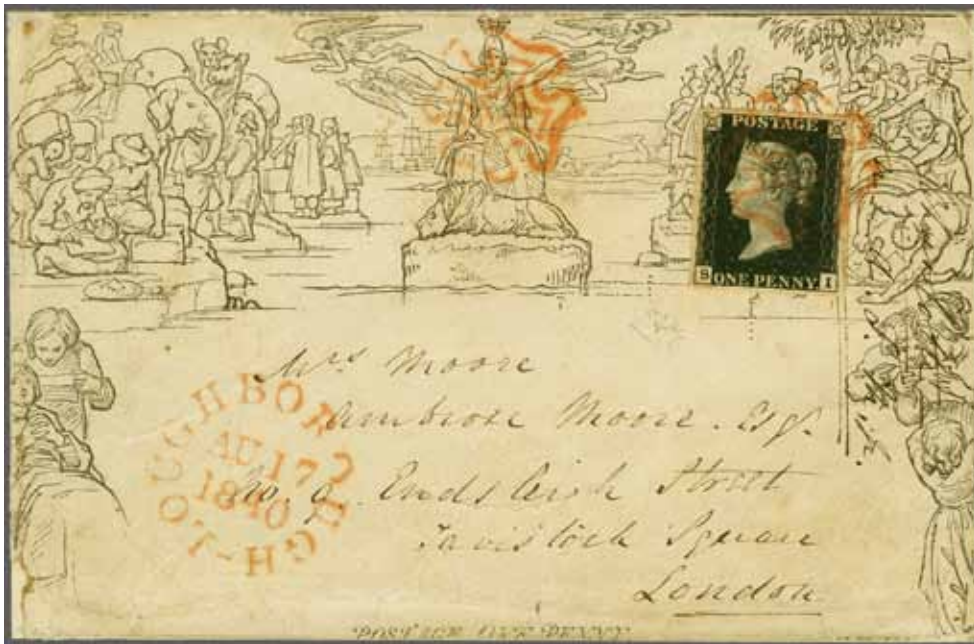 POSTAGE
S ONE PENNY I
Mrs Moore
Ambrose Moore. Esqr.
No. 9. Endsleigh Street
Tavistock Square
London
LOUGHBOROUGH
AU 17
1840
POSTAGE ONE PENNY